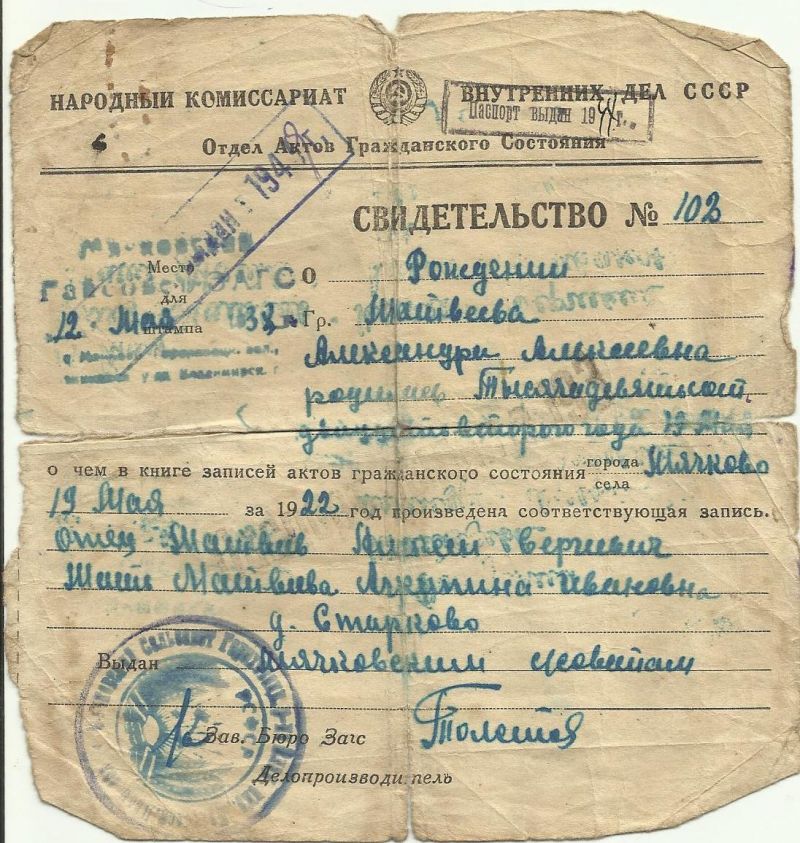 НАРОДНЫЙ КОМИССАРИАТ ВНУТРЕННИХ ДЕЛ СССР
Паспорт выдан 1944 г.
Отдел Актов Гражданского Состояния
194
СВИДЕТЕЛЬСТВО № 103
Место
для
штампа
12 Мая 38
О Рождении
Гр. Матвеева
Александра Алексеевна
родилась Тысячадевятьсот
двадцать второго года 19 Мая
о чем в книге записей актов гражданского состояния города села Мячково
19 Мая за 1922 год произведена соответствующая запись.
Отец Матвеев Алексей
Мать Матвеева Акулина Ивановна
д. Старково
Выдан Мячковским с/советам
Зав. Бюро Загс
Делопроизводитель
РСФСР